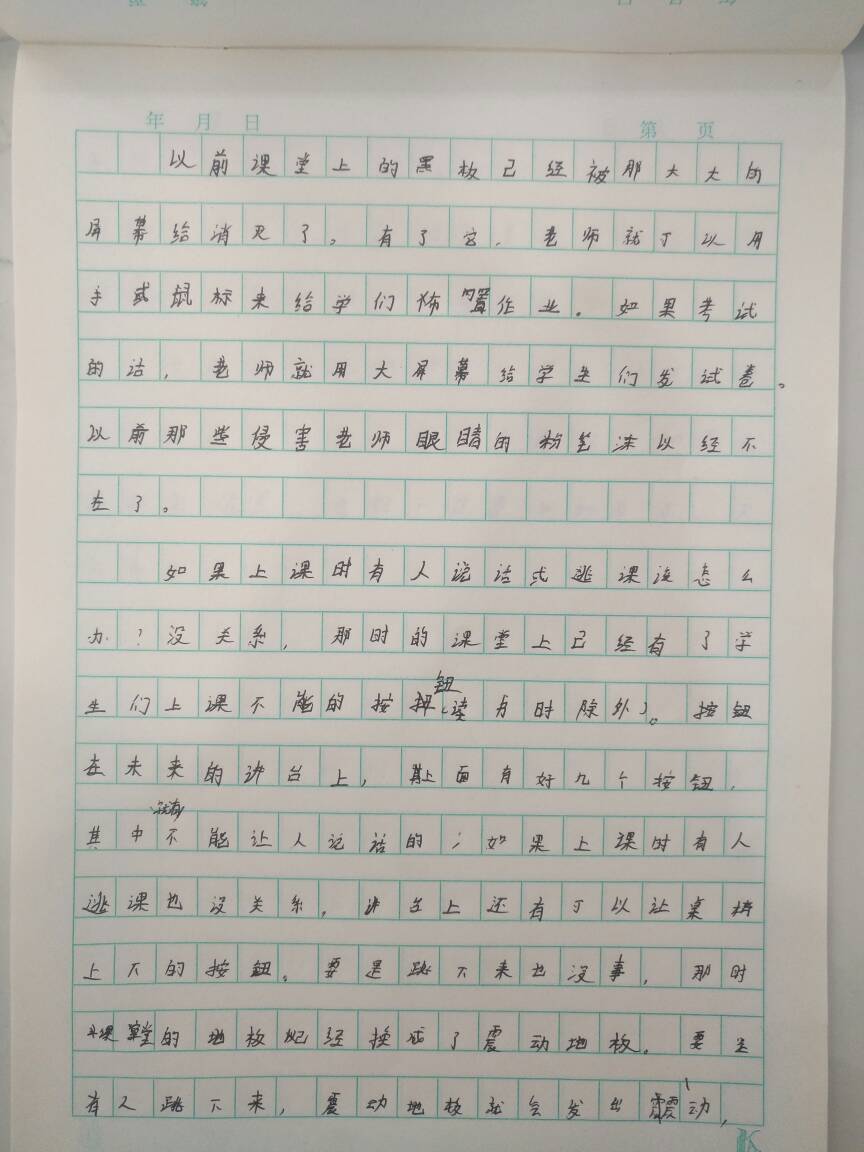 年 月 日 第 页
以前课堂上的黑板已经被那大大的
屏幕给消灭了。有了它，老师就可以用
手或鼠标来给学们怖置作业。如果考试
的话，老师就用大屏幕给学生们发试卷。
以前那些侵害老师眼睛的粉笔沫以经不
在了。
如果上课时有人说话或逃课该怎么
办？没关系，那时的课堂上已经有了学
生们上课不能的按钮（读书时除外）。按钮
在未来的讲台上，其上面有好几个按钮，
其中就有不能让人说话的；如果上课时有人
逃课也没关系，讲台上还有可以让桌椅
上下的按钮。要是跳下来也没事，那时
课堂的地板已经换成了震动地板。要是
有人跳下来，震动地板就会发出震动，